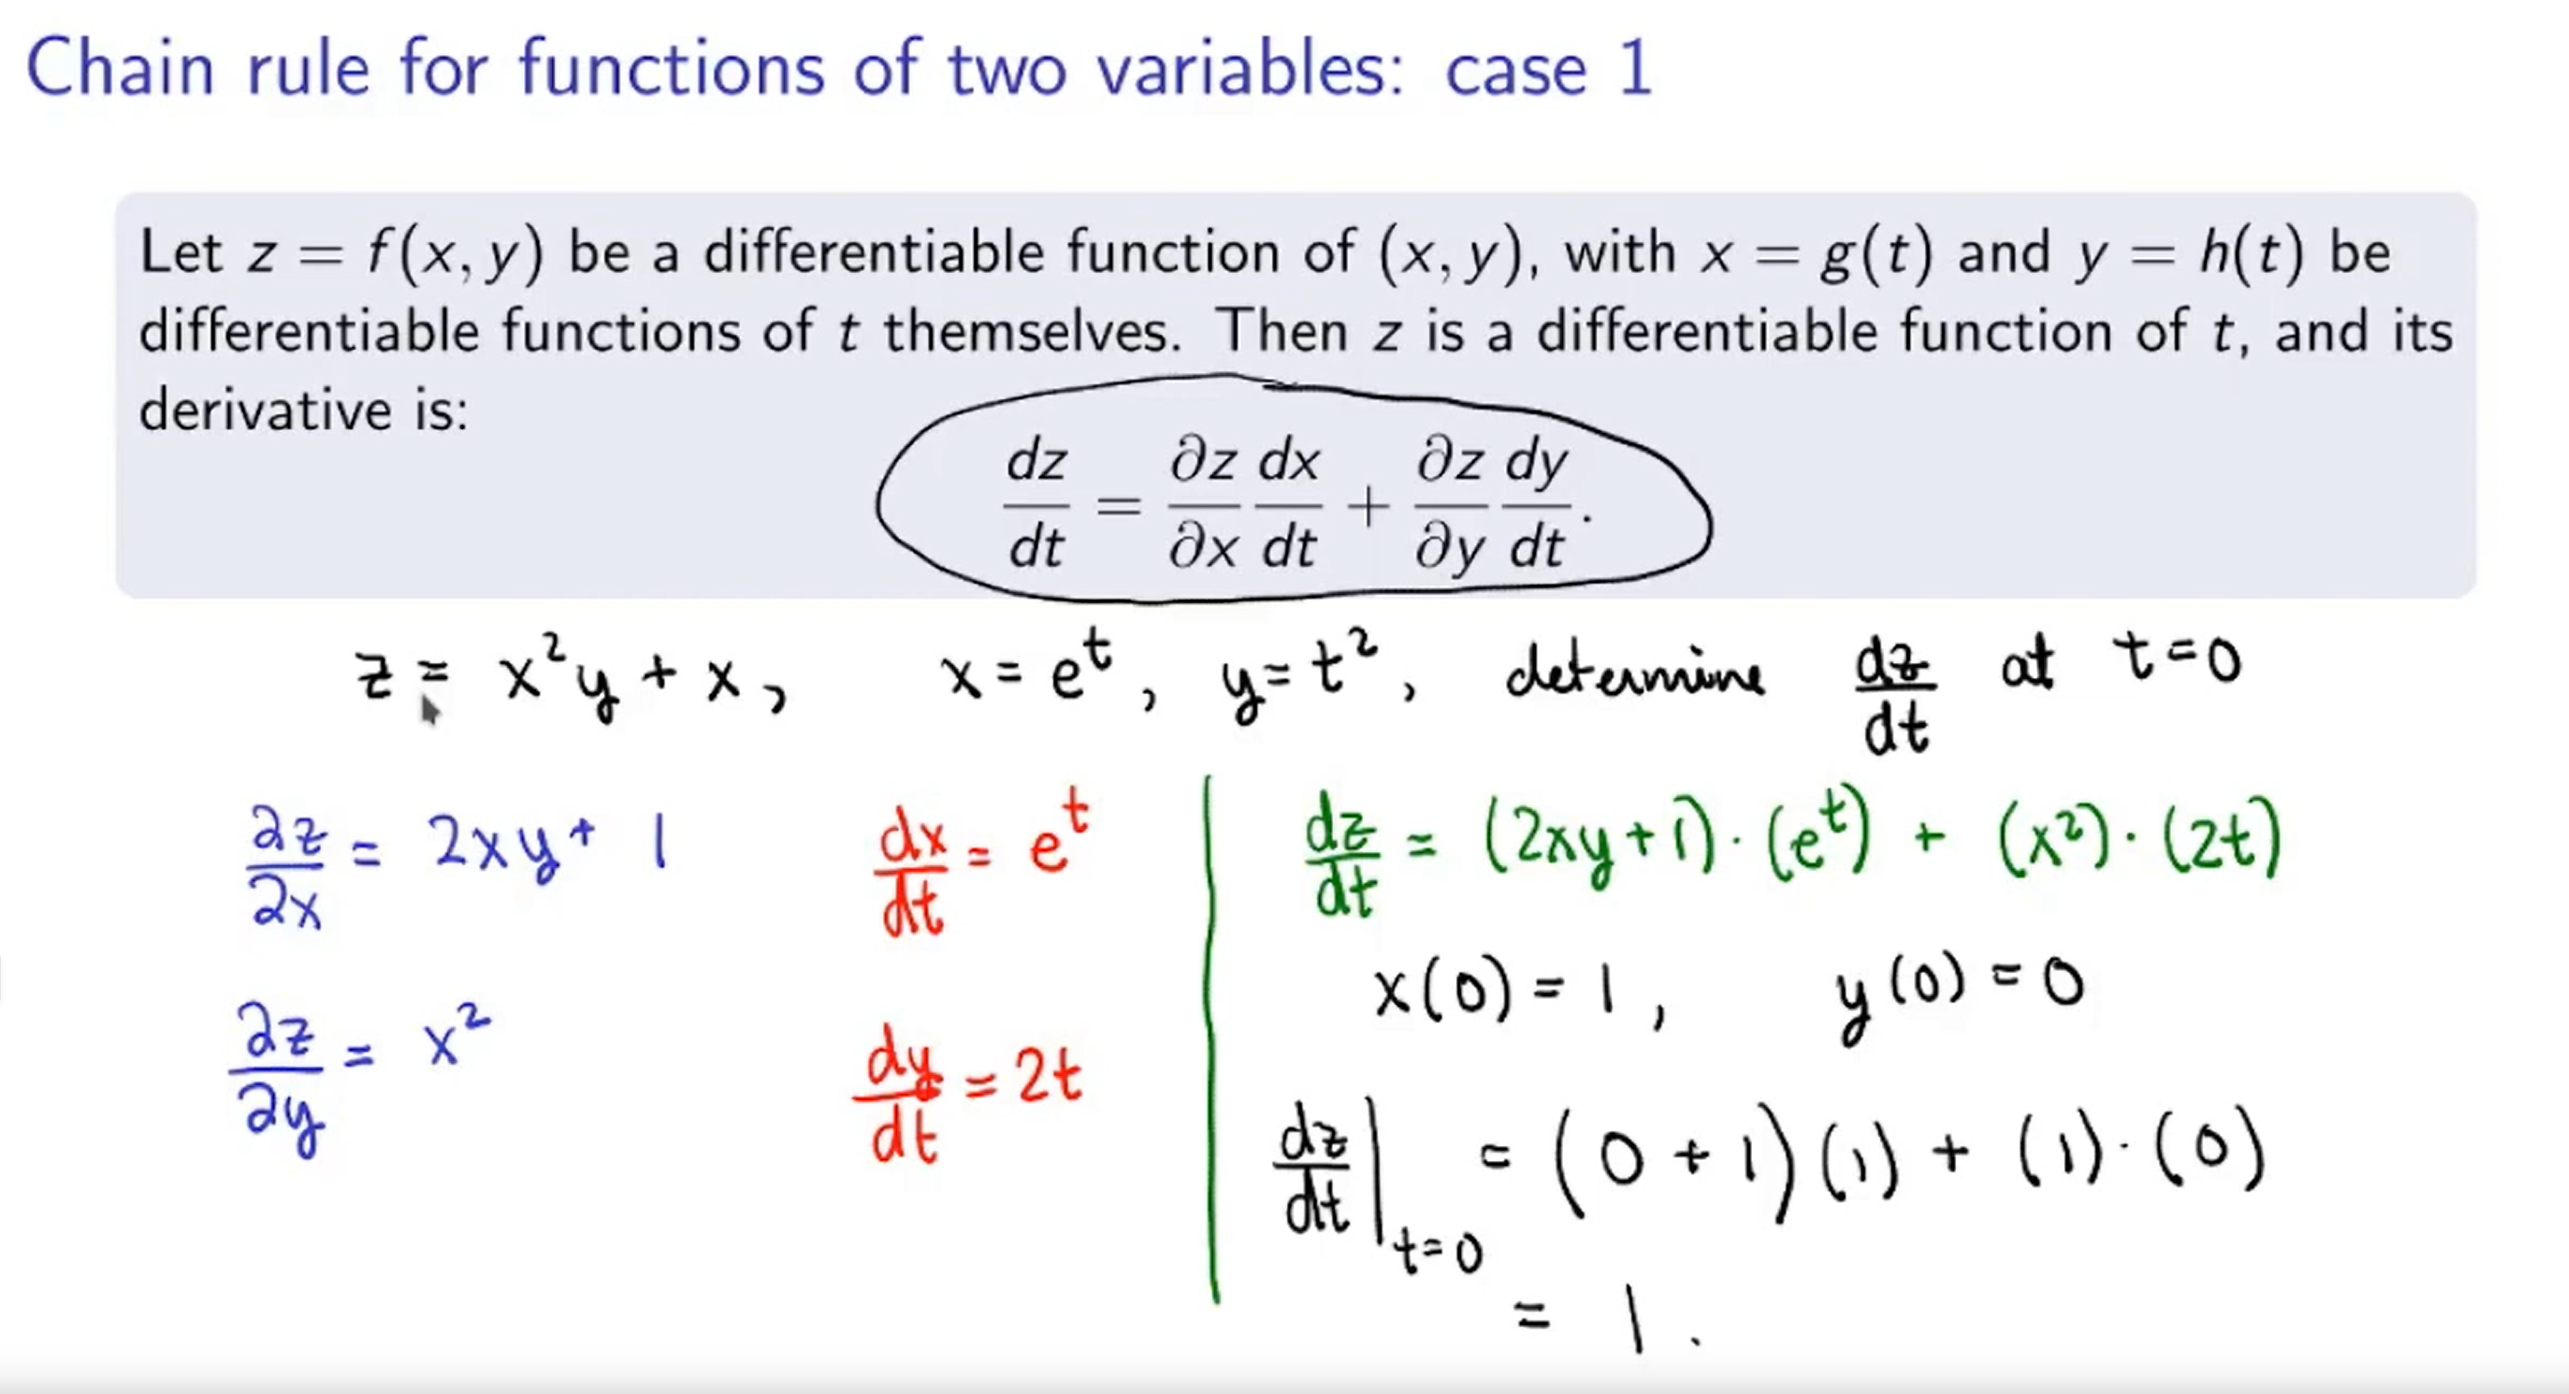 Chain rule for functions of two variables: case 1
Let z = f(x, y) be a differentiable function of (x, y), with x = g(t) and y = h(t) be
differentiable functions of t themselves. Then z is a differentiable function of t, and its
derivative is:
dz/dt = ∂z/∂x dx/dt + ∂z/∂y dy/dt.
z = x²y + x, x = e^t, y = t², determine dz/dt at t=0
∂z/∂x = 2xy + 1
∂z/∂y = x²
dx/dt = e^t
dy/dt = 2t
dz/dt = (2xy+1)·(e^t) + (x²)·(2t)
x(0) = 1, y(0) = 0
dz/dt |t=0 = (0 + 1)(1) + (1)·(0)
= 1.